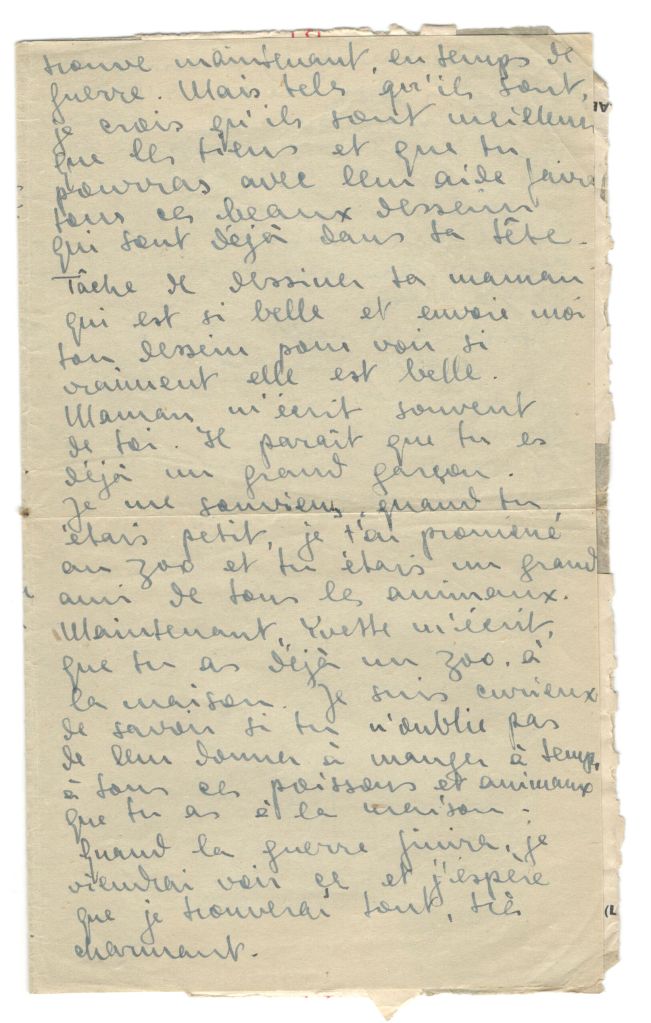 trouve maintenant, en temps de
guerre. Mais tels qu'ils sont,
je crois qu'ils sont meilleurs
que les tiens et que tu
pourras avec leur aide faire
tous ces beaux dessein
qui sont déjà dans ta tête.
Tâche de dessiner ta maman
qui est si belle et envoie moi
ton dessein pour voir si
vraiment elle est belle.
Maman m'écrit souvent
de toi. Il paraît que tu es
déjà un grand garçon.
Je me souviens, quand tu
étais petit, je t'ai promené
au zoo et tu étais un grand
ami de tous les animaux.
Maintenant, Yvette m'écrit,
que tu as déjà un zoo à
la maison. Je suis curieux
de savoir si tu n'oublie pas
de leur donner à manger à temps,
à tous ces poissons et animaux
que tu as à la maison.
Quand la guerre finira, je
viendrai voir ça et j'espère
que je trouverai tout, très
charmant.